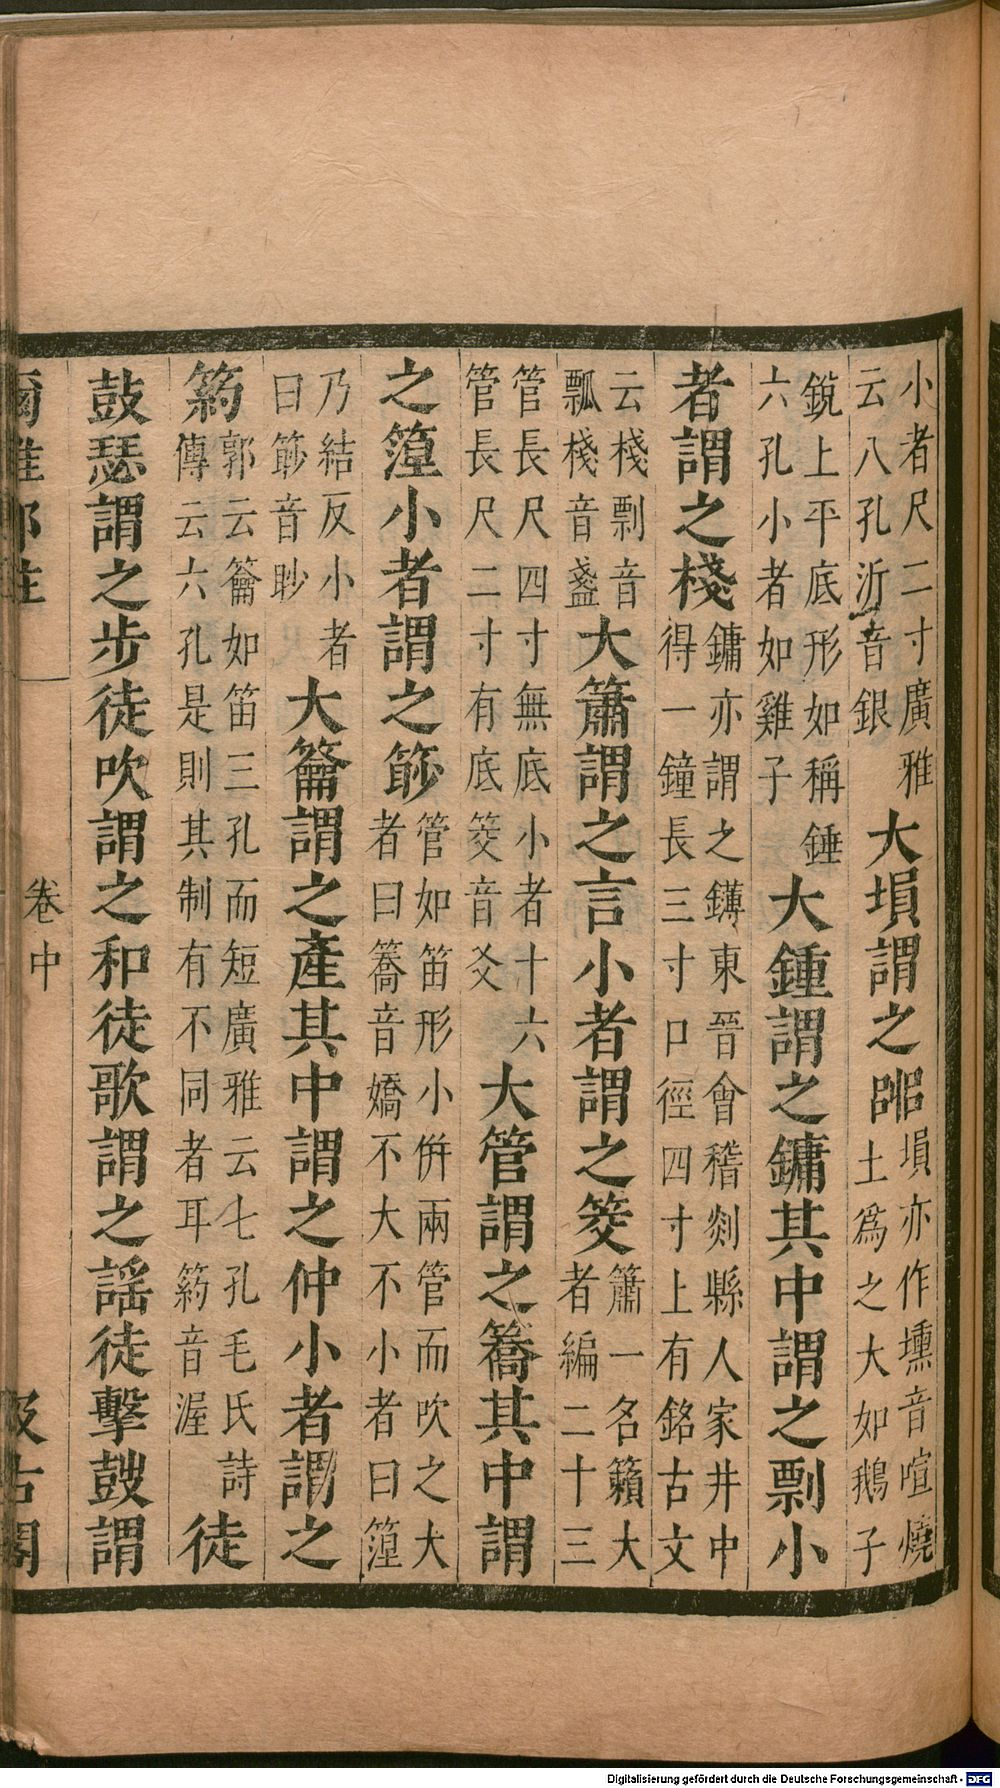 小者尺二寸廣雅
云八孔沂音銀
大塤謂之嘂
塤亦作壎音喧燒
土爲之大如鵝子
銳上平底形如稱錘
六孔小者如雞子
大鍾謂之鏞其中謂之剽小
者謂之棧
鏞亦謂之鑮東晉會稽剡縣人家井中
得一鐘長三寸口徑四寸上有銘古文
云棧剽音
瓢棧音盞
大簫謂之言小者謂之筊
簫一名籟大
者編二十三
管長尺四寸無底小者十六
管長尺二寸有底筊音爻
大管謂之簥其中謂
之篞小者謂之篎
管如笛形小併兩管而吹之大
者曰簥音嬌不大不小者曰篞
乃結反小者
曰篎音眇
大籥謂之產其中謂之仲小者謂之
箹
郭云籥如笛三孔而短廣雅云七孔毛氏詩
傳云六孔是則其制有不同者耳箹音渥
徒
鼓瑟謂之步徒吹謂之和徒歌謂之謠徒擊鼓謂
爾雅郭註
卷中
汲古閣
Digitalisierung gefördert durch die Deutsche Forschungsgemeinschaft - DFG